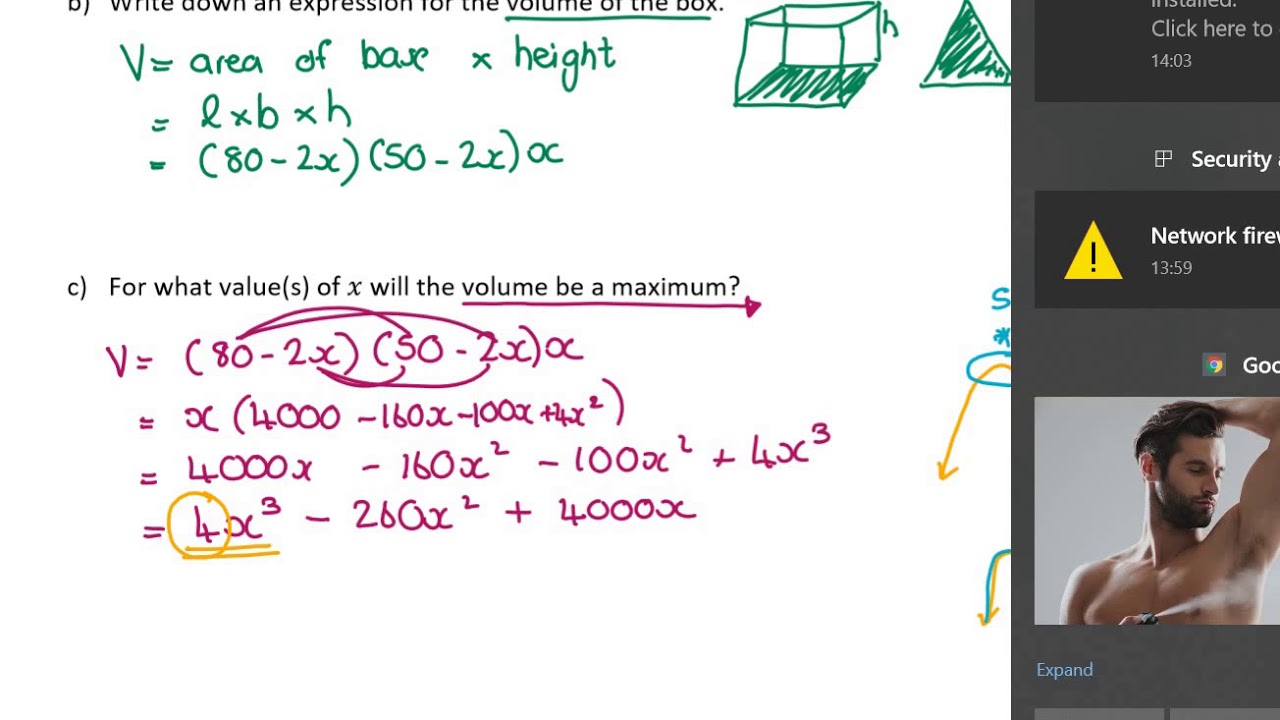 b) Write down an expression for the volume of the box.
V = area of base × height
= l × b × h
= (80 - 2x) (50 - 2x) x
h
c) For what value(s) of x will the volume be a maximum?
V = (80 - 2x) (50 - 2x) x
= x (4000 - 160x - 100x + 4x²)
= 4000x - 160x² - 100x² + 4x³
= 4x³ - 260x² + 4000x
S
*
installed.
Click here to
14:03
Security
Network firew
13:59
Goo
Expand